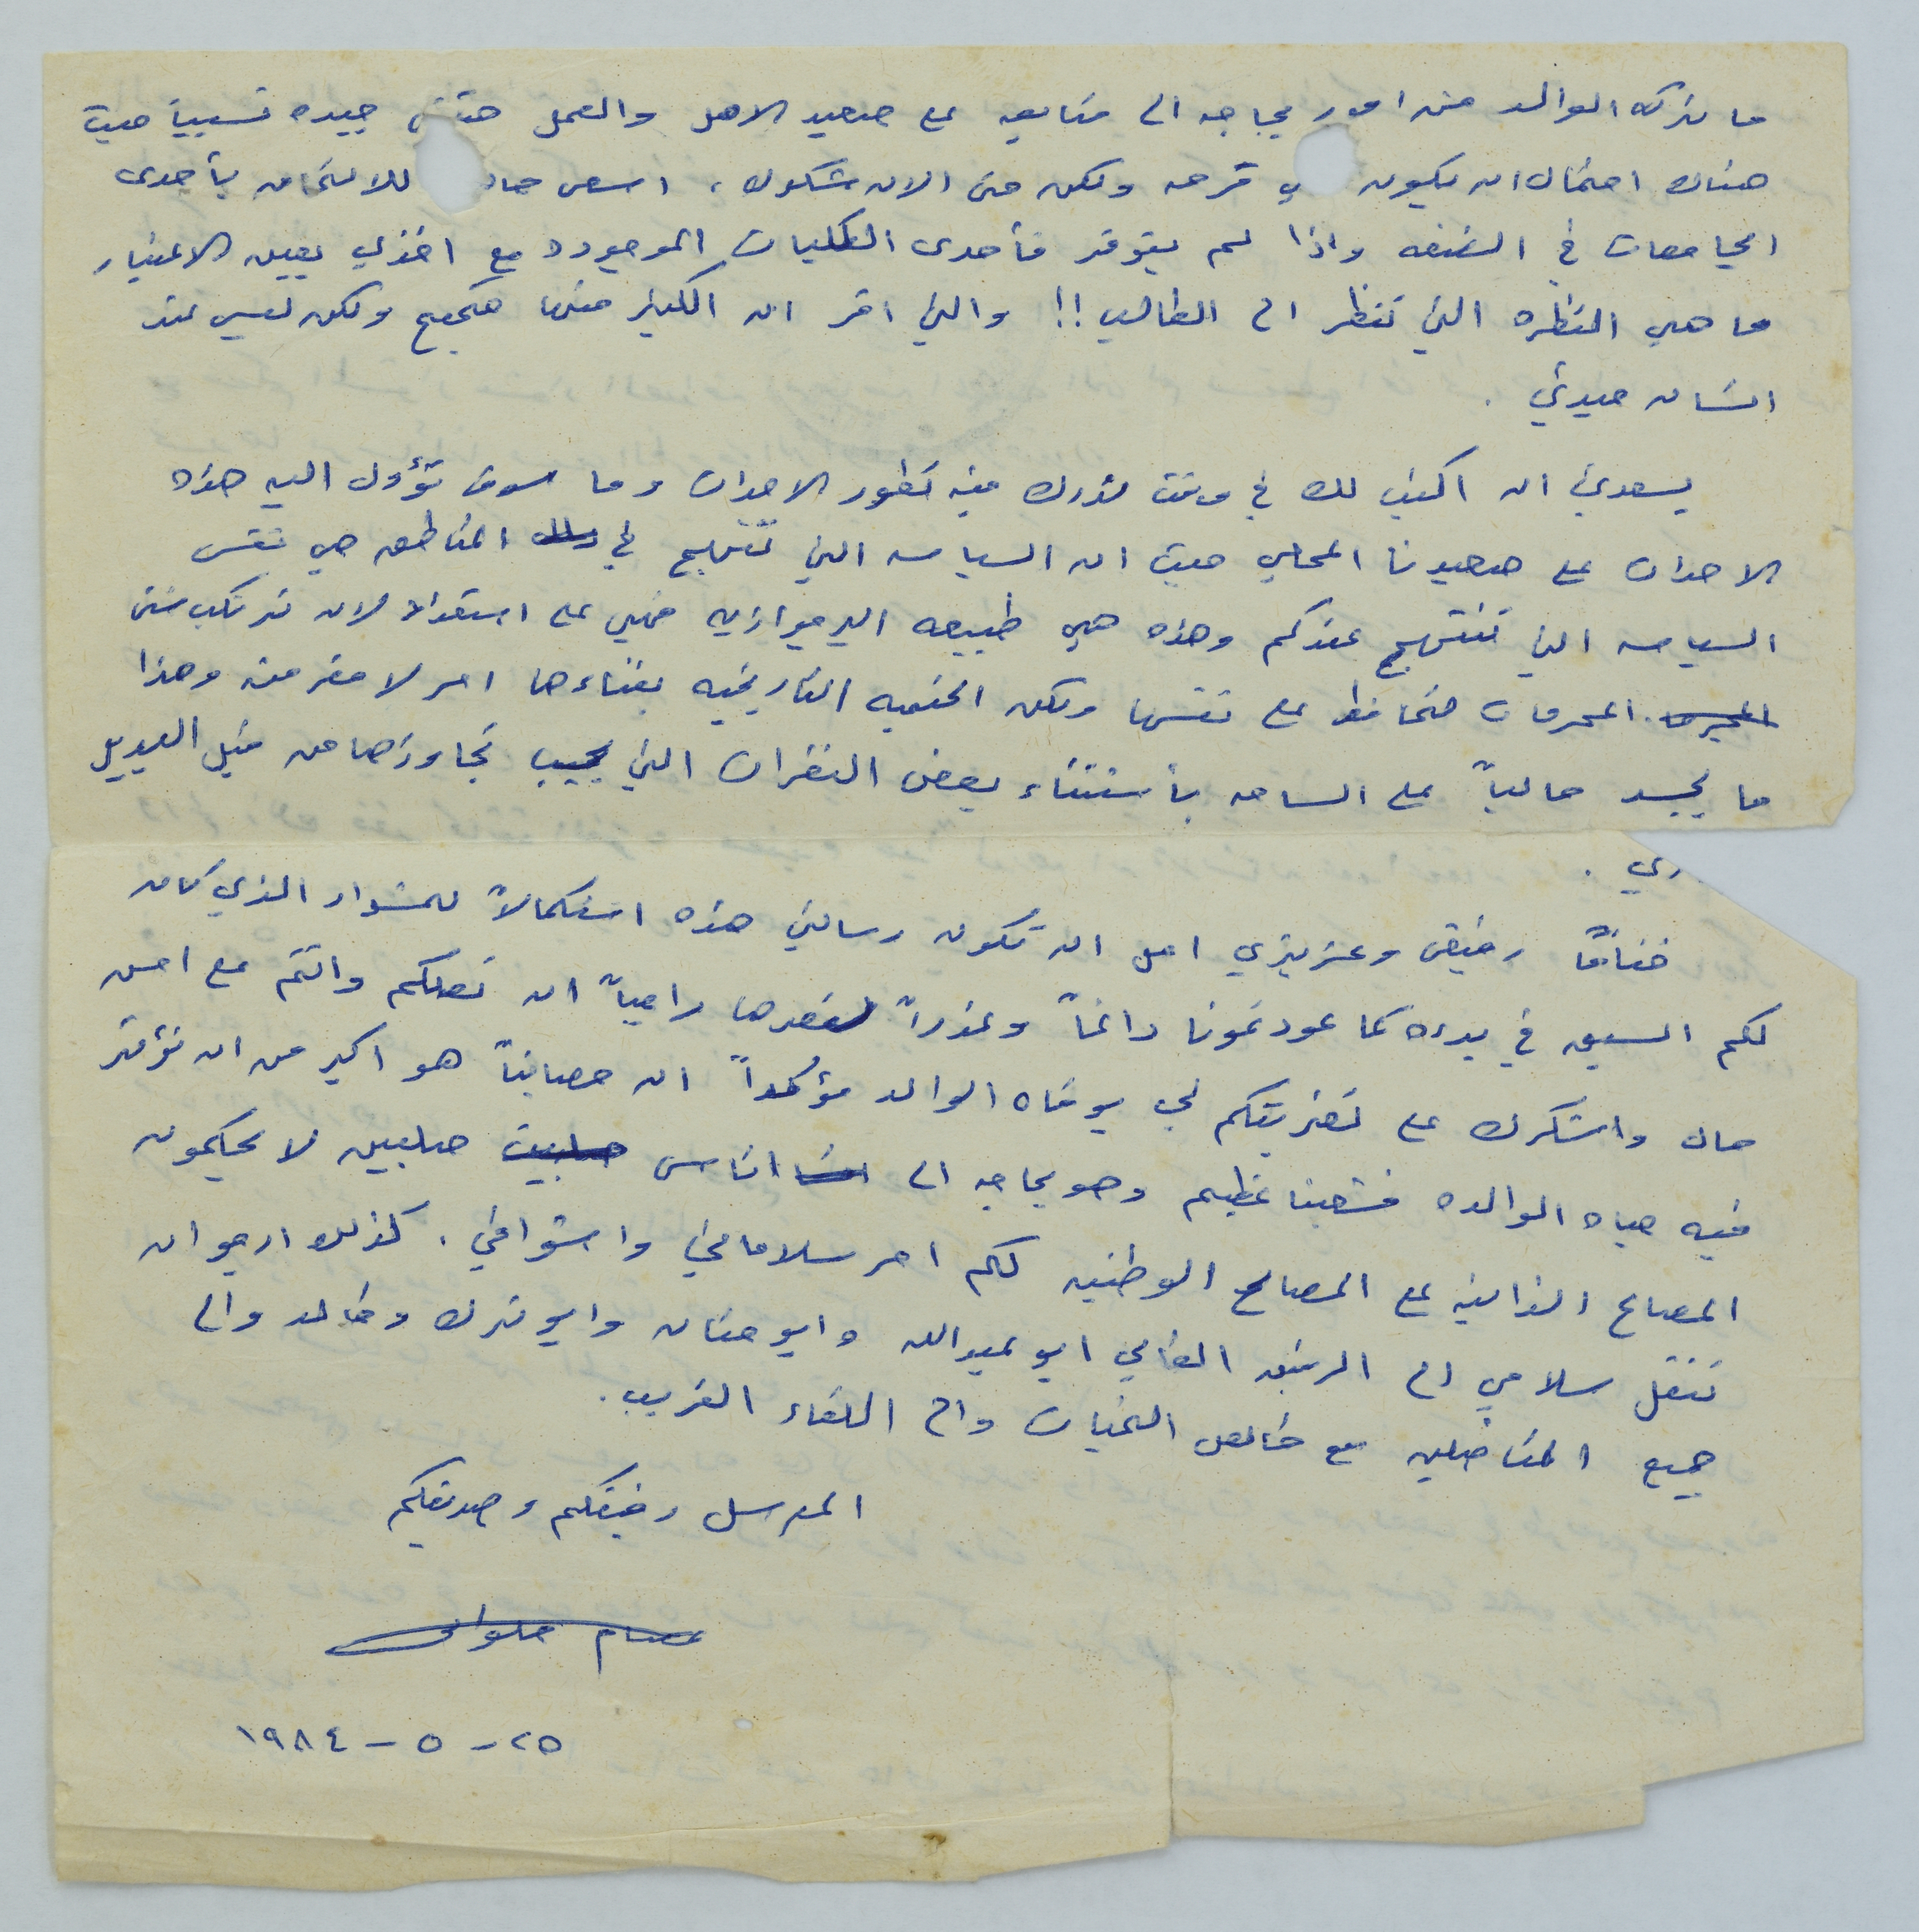 ما تركه الوالد من امور بحاجه الى متابعه على صعيد الاهل والعمل حتى جيده نسبياً حيث
هناك احتمال ان يكون قرحه ولكن حتى الان شكوك، اسعى للالتحاق بأحدى
الجامعات في الضفه واذا لم يتوفر فأحدى الكليات الموجوده مع اخذي بعين الاعتبار
ما هي النظره التي تنظر الى الطالب!! والتي اقر ان الكثير منها صحيح ولكن ليس عند
انسان مبدئي.
يسعدني ان اكتب لك في وقت ندرك فيه تطور الاحداث وما سوف تؤول اليه هذه
الاحداث على صعيدنا المحلي حيث ان السياسه التي تنتهج في تلك المناطق هي نفس
السياسه التي تنتهج عندكم وهذه هي طبيعه البرجوازيه فهي على استعداد لان ترتكب شتى
المحرمات لتحافظ على نفسها ولكن الحتميه التاريخيه بفناءها امر لا مفر منه وهذا
ما يجسد حالياً على الساحه بأستثناء بعض الثغرات التي يجب تجاوزها من قبل البديل
ري.
ختاماً رفيقي وعزيزي امل ان تكون رسالتي هذه استكمالاً للمشوار الذي كان
لكم السبق في بدءه كما عودتمونا دائماً وعذراً لقصرها راجياً ان تصلكم وانتم على احسن
حال واشكرك على تعزيتكم لي بوفاه الوالد مؤكداً ان مصابنا هو اكبر من ان نؤثر
فيه حياه الوالده فشعبنا عظيم وهو بحاجه الى اناس صلبين لا يحكمون
المصالح الذاتيه على المصالح الوطنيه لكم احر سلاماتي واشواقي. كذلك ارجو ان
تنقل سلامي الى الرفيق الغالي ابو عبدالله وابو حنان وابو ترك وخالد والى
جميع المناضلين مع خالص التحيات والى اللقاء القريب.
المرسل رفيقكم وصديقكم
عصام حلوان
٢٥-٥-١٩٨٤